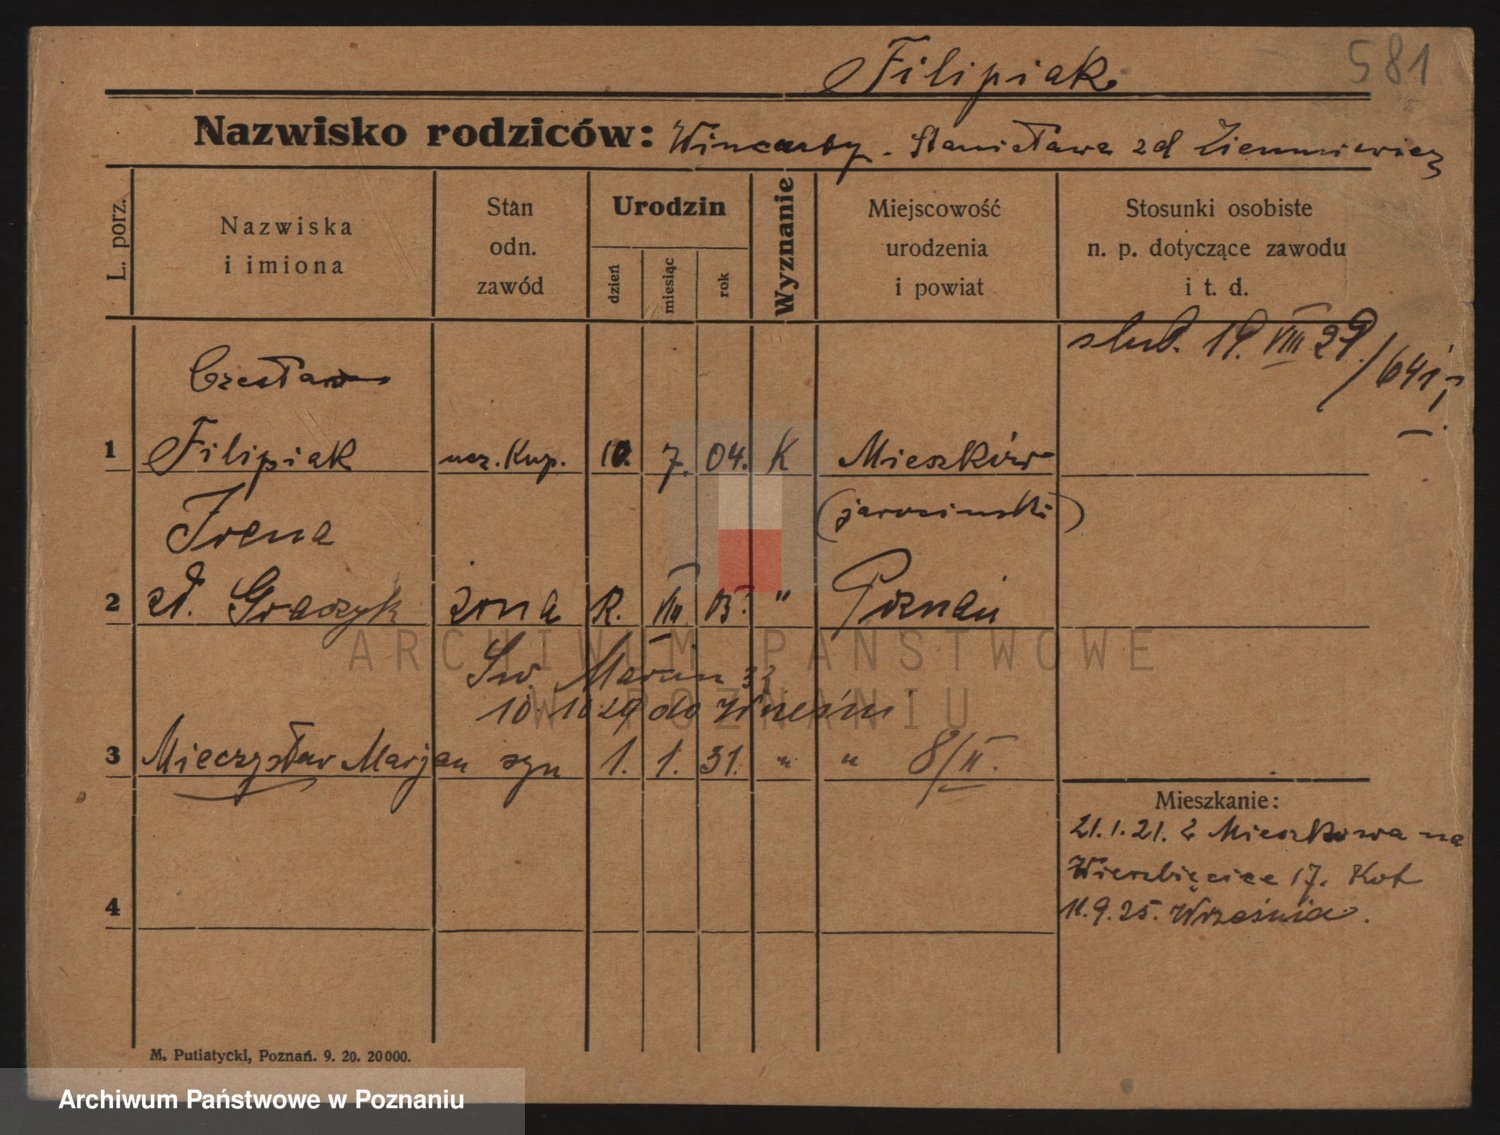 Filipiak
581
Nazwisko rodziców: Wincenty. Stanisława zd Ziemniewicz
L. porz.
Nazwiska
i imiona
Stan
odn.
zawód
Urodzin
dzień
miesiąc
rok
Wyznanie
Miejscowość
urodzenia
i powiat
Stosunki osobiste
n. p. dotyczące zawodu
i t. d.
19. VIII 29/641
Czesław
1 Filipiak ucz. Kup. 10. 7. 04. K Mieszków
(jarociński)
Irena
2 Graczyk żona VIII " Poznań
Św. Marcin 33
10 10 29 do Wrześni
3 Mieczysław Marjan syn 1. 1. 31. " " 8/II.
Mieszkanie:
21.1.21. z Mieszkowa na
Wierzbięcice 17. Kot
11.9.25. Września.
4
M. Putiatycki, Poznań. 9. 20. 20000.
ARCHIWUM PAŃSTWOWE
W POZNANIU
Archiwum Państwowe w Poznaniu